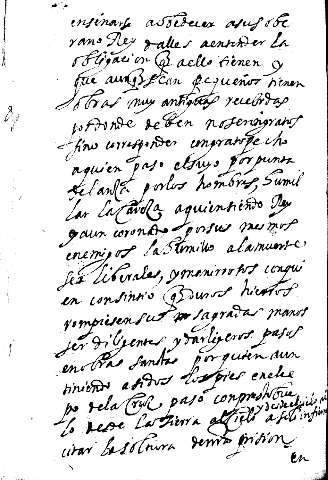 enseñarse a obedecer a su sobe
rano Rey dalles a entender la
obligacion q̃ a ello tienen y
que aunq̃ sean pequeños tienen
obras muy antiguas recebidas
por donde deben no ser ingratos
sino corresponder con grato pecho
a quien paso el suyo por punta
de lanza por los hombres, humil
lar la cabeza a quien siendo Rey
y aun coronado por sus mesmos
enemigos la humillo a la muerte
ser liberales, y no mirrotos con qui
en consintio q̃ duros hierros
rompiesen sus sagradas manos
ser diligentes y dar ligeros pasos
en obras santas por quien aun
tiniendo asidos los pies en el cle
po de la Cruz paso con presto bue
lo desde la tierra al cielo y desde el cielo al
a solo infierno
citar la soltura de mi prision
en